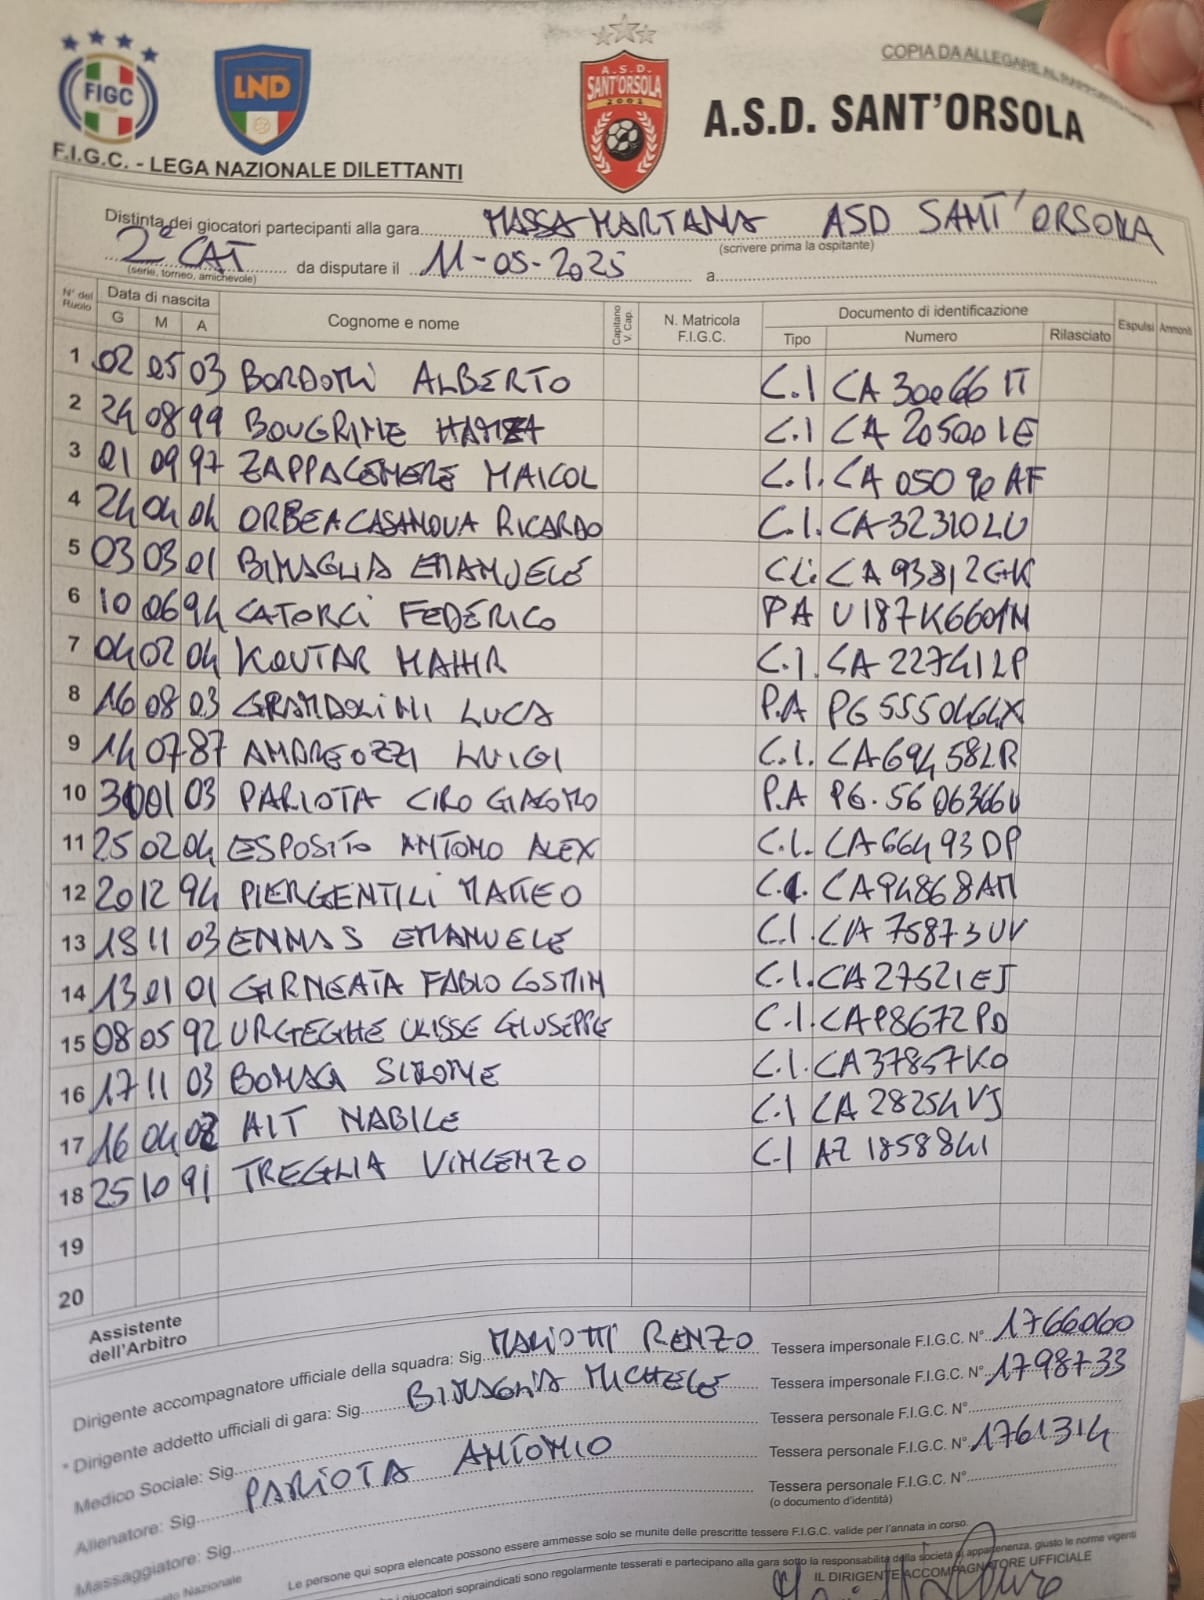 COPIA DA ALLEGARE AL RAPPORTO
FIGC
LND
A.S.D.
SANT'ORSOLA
2002
A.S.D. SANT'ORSOLA
F.I.G.C. - LEGA NAZIONALE DILETTANTI
Distinta dei giocatori partecipanti alla gara MASSA MARTANA ASD SANT'ORSOLA
(scrivere prima la ospitante)
2ª CAT da disputare il 11-05-2025 a
(serie, torneo, amichevole)
N° del Ruolo Data di nascita Cognome e nome Capitano V. Cap. N. Matricola F.I.G.C. Documento di identificazione Espulsi Ammoniti
G M A Tipo Numero Rilasciato
1 02 05 03 BORDONI ALBERTO C.I CA 30066 IT
2 24 08 99 BOUGRINE HAMZA C.I CA 20500 IE
3 01 09 97 ZAPPACENERE MAICOL C.I. CA 050 90 AF
4 24 04 04 ORBEA CASANOVA RICARDO C.I. CA 32310 LU
5 03 03 01 BINAGLIA EMANUELE C.I. CA 93812 GK
6 10 06 94 CATORCI FEDERICO PA U187K6601M
7 04 02 04 KOUTAR MAHIR C.I. CA 22741 LP
8 16 08 03 GRANDOLINI LUCA P.A PG 5550464X
9 14 07 87 ANDREOZZI LUIGI C.I. CA 69458 LR
10 30 01 03 PARIOTA CIRO GIACOMO P.A PG. 5606366U
11 25 02 04 ESPOSITO ANTONIO ALEX C.I. CA 66493 DP
12 20 12 94 PIERGENTILI MATTEO C.I. CA 94868 AM
13 18 11 03 ENNAS EMANUELE C.I. CA 75873 UV
14 13 01 01 GIRNEATA FABIO COSTIN C.I. CA 27521 EJ
15 08 05 92 URGEGHE ULISSE GIUSEPPE C.I. CA 98672 PD
16 17 11 03 BONACA SIMONE C.I. CA 37857 KO
17 16 04 02 AIT NABILE C.I CA 28254 VJ
18 25 10 91 TREGLIA VINCENZO C.I AZ 1858841
19
20
Assistente dell'Arbitro
Dirigente accompagnatore ufficiale della squadra: Sig. MARIOTTI RENZO Tessera impersonale F.I.G.C. N° 1766060
* Dirigente addetto ufficiali di gara: Sig. BINAGLIA MICHELE Tessera impersonale F.I.G.C. N° 1798733
Medico Sociale: Sig. Tessera personale F.I.G.C. N°
Allenatore: Sig. PARIOTA ANTONIO Tessera personale F.I.G.C. N° 1761314
Massaggiatore: Sig. Tessera personale F.I.G.C. N°
(o documento d'identità)
Le persone qui sopra elencate possono essere ammesse solo se munite delle prescritte tessere F.I.G.C. valide per l'annata in corso.
Nazionale
giuocatori sopraindicati sono regolarmente tesserati e partecipano alla gara sotto la responsabilità della società di appartenenza, giusto le norme vigenti
IL DIRIGENTE ACCOMPAGNATORE UFFICIALE